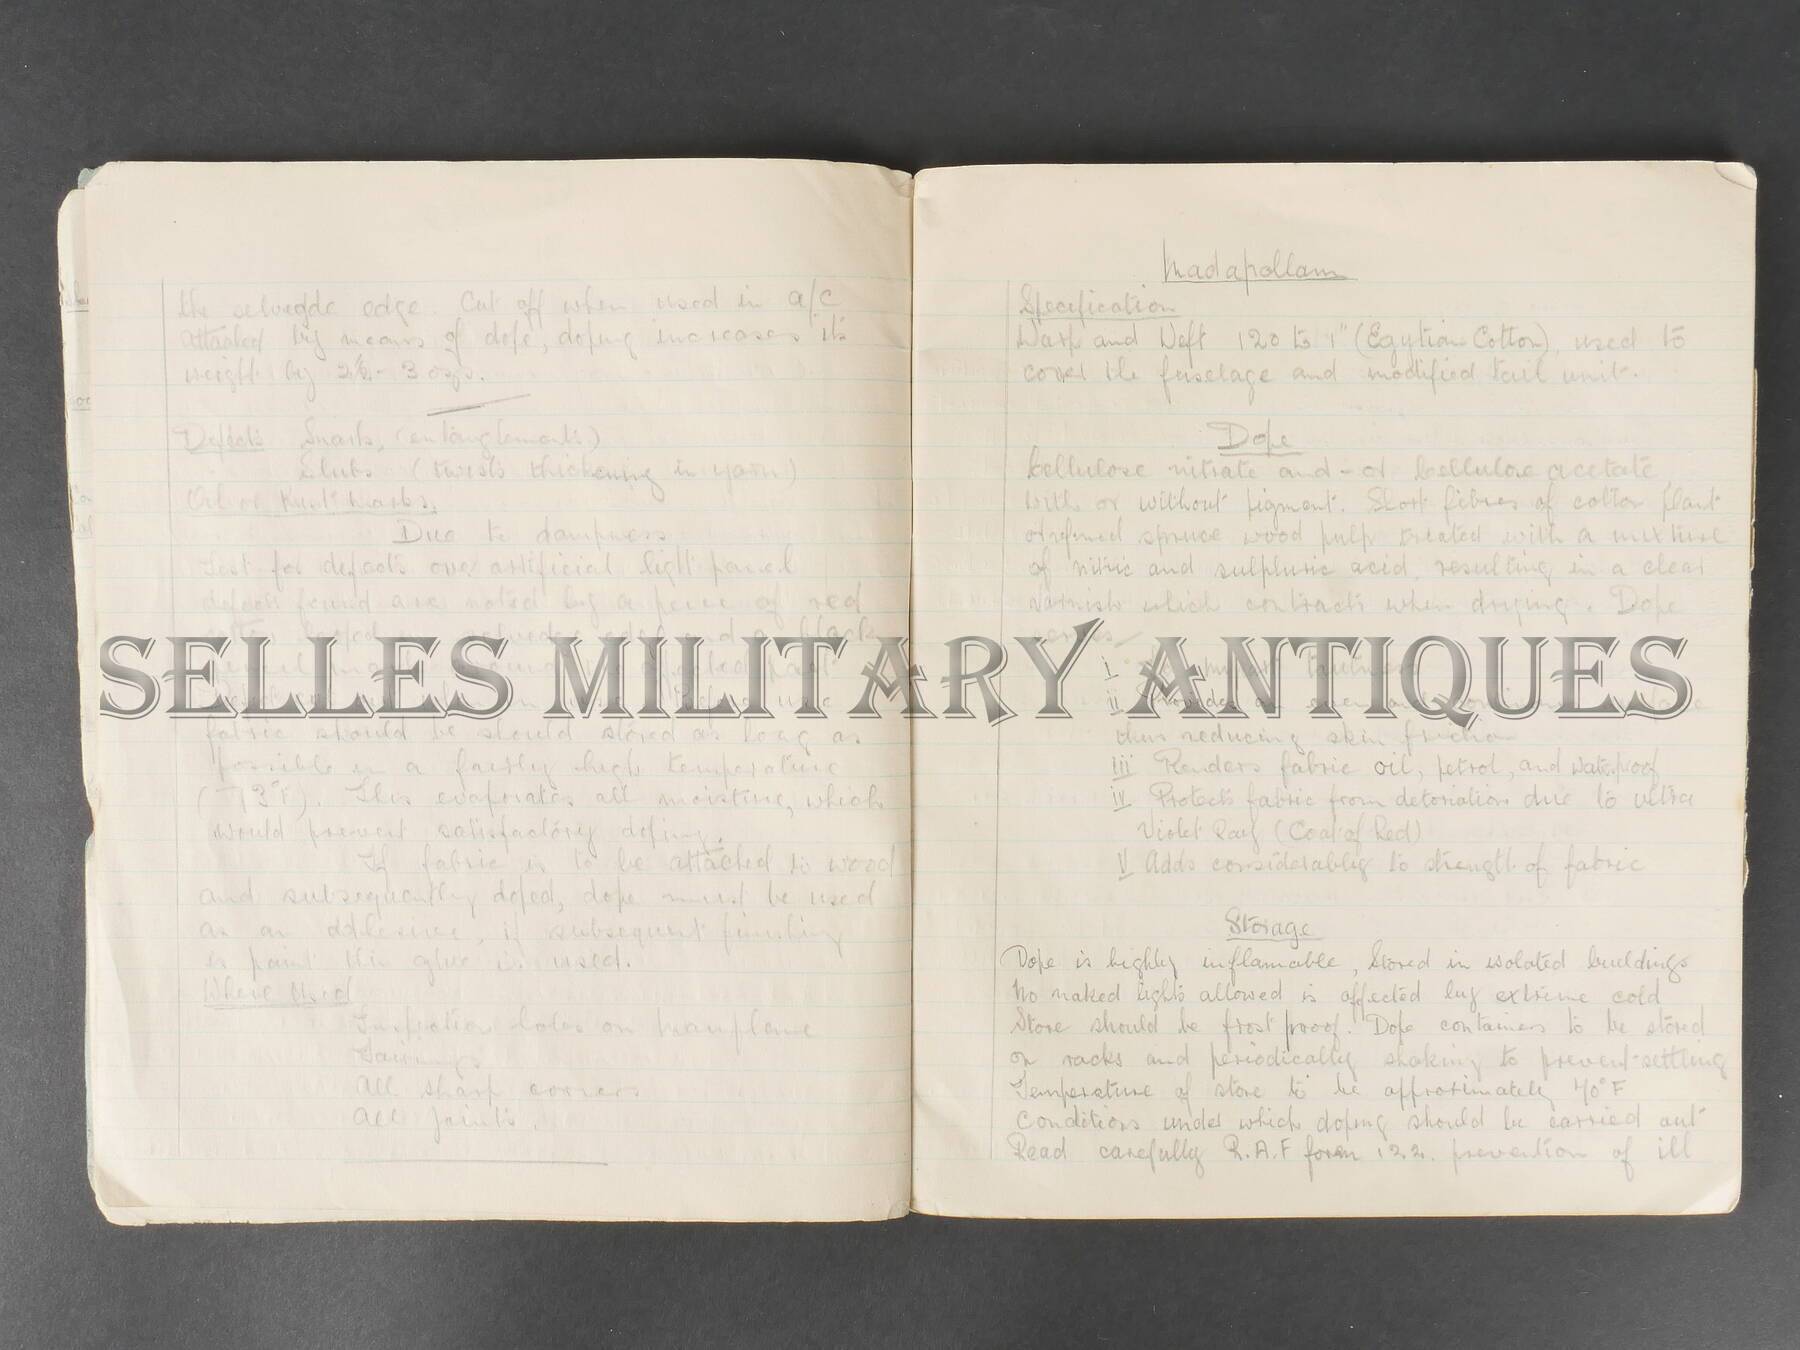 the selvedde edge. Cut off when used in a/c
Attached by means of dope, doping increases its
weight by 2½ - 3 ozs.
Defects Snarls, (entanglements)
Slubs (twists thickening in yarn)
Oil or Rust marks.
Due to dampness
Test for defects over artificial light panel
defects found are noted by a piece of red
selvedge edge and a black
fabric should be should stored as long as
possible in a fairly high temperature
(73°F). This evaporates all moisture, which
would prevent satisfactory doping.
If fabric is to be attached to wood
and subsequently doped, dope must be used
as an adhesive, if subsequent finishing
is paint thin glue is used.
Where Used
Inspection holes on mainplane
Fairings
All sharp corners
All joints.
Madapollam
Specification
Warp and Weft 120 to 1" (Egytian Cotton), used to
cover the fuselage and modified tail unit.
Dope
Cellulose nitrate and - or Cellulose acetate,
with or without pigment. Short fibres of cotton plant
or refined spruce wood pulp treated with a mixture
of nitric and sulphuric acid, resulting in a clear
varnish which contracts when drying. Dope
SELLES MILITARY ANTIQUES
i tautness
ii Provides an even
thus reducing skin friction
iii Renders fabric oil, petrol, and waterproof
iv Protects fabric from detoriation due to ultra
Violet Ray (Coat of Red)
V Adds considerably to strength of fabric
Storage
Dope is highly inflamable, Stored in isolated buildings
No naked lights allowed is affected by extreme cold
Store should be frost proof. Dope containers to be stored
on racks and periodically shaking to prevent settling
Temperature of store to be approximately 70°F
Conditions under which doping should be carried out
Read carefully R.A.F form 122. prevention of ill